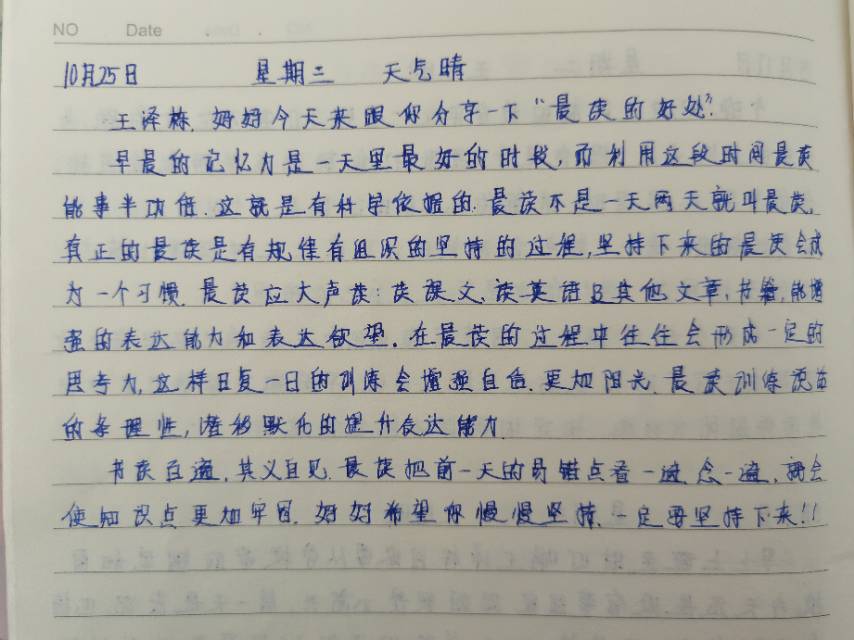 NO Date
10月25日 星期三 天气晴
王泽栋, 妈妈今天来跟你分享一下“晨读的好处”.
早晨的记忆力是一天里最好的时段,而利用这段时间晨读
能事半功倍.这就是有科学依据的.晨读不是一天两天就叫晨读,
真正的晨读是有规律有组织的坚持的过程,坚持下来的晨读会成
为一个习惯.晨读应大声读:读课文,读英语及其他文章,书籍,能增
强的表达能力和表达欲望.在晨读的过程中往往会形成一定的
思考力,这样日复一日的训练会增强自信.更加阳光.晨读训练说话
的条理性,潜移默化的提升表达能力.
书读百遍,其义自见.晨读把前一天的易错点看一遍,念一遍,都会
使知识点更加牢固.妈妈希望你慢慢坚持,一定要坚持下来!!